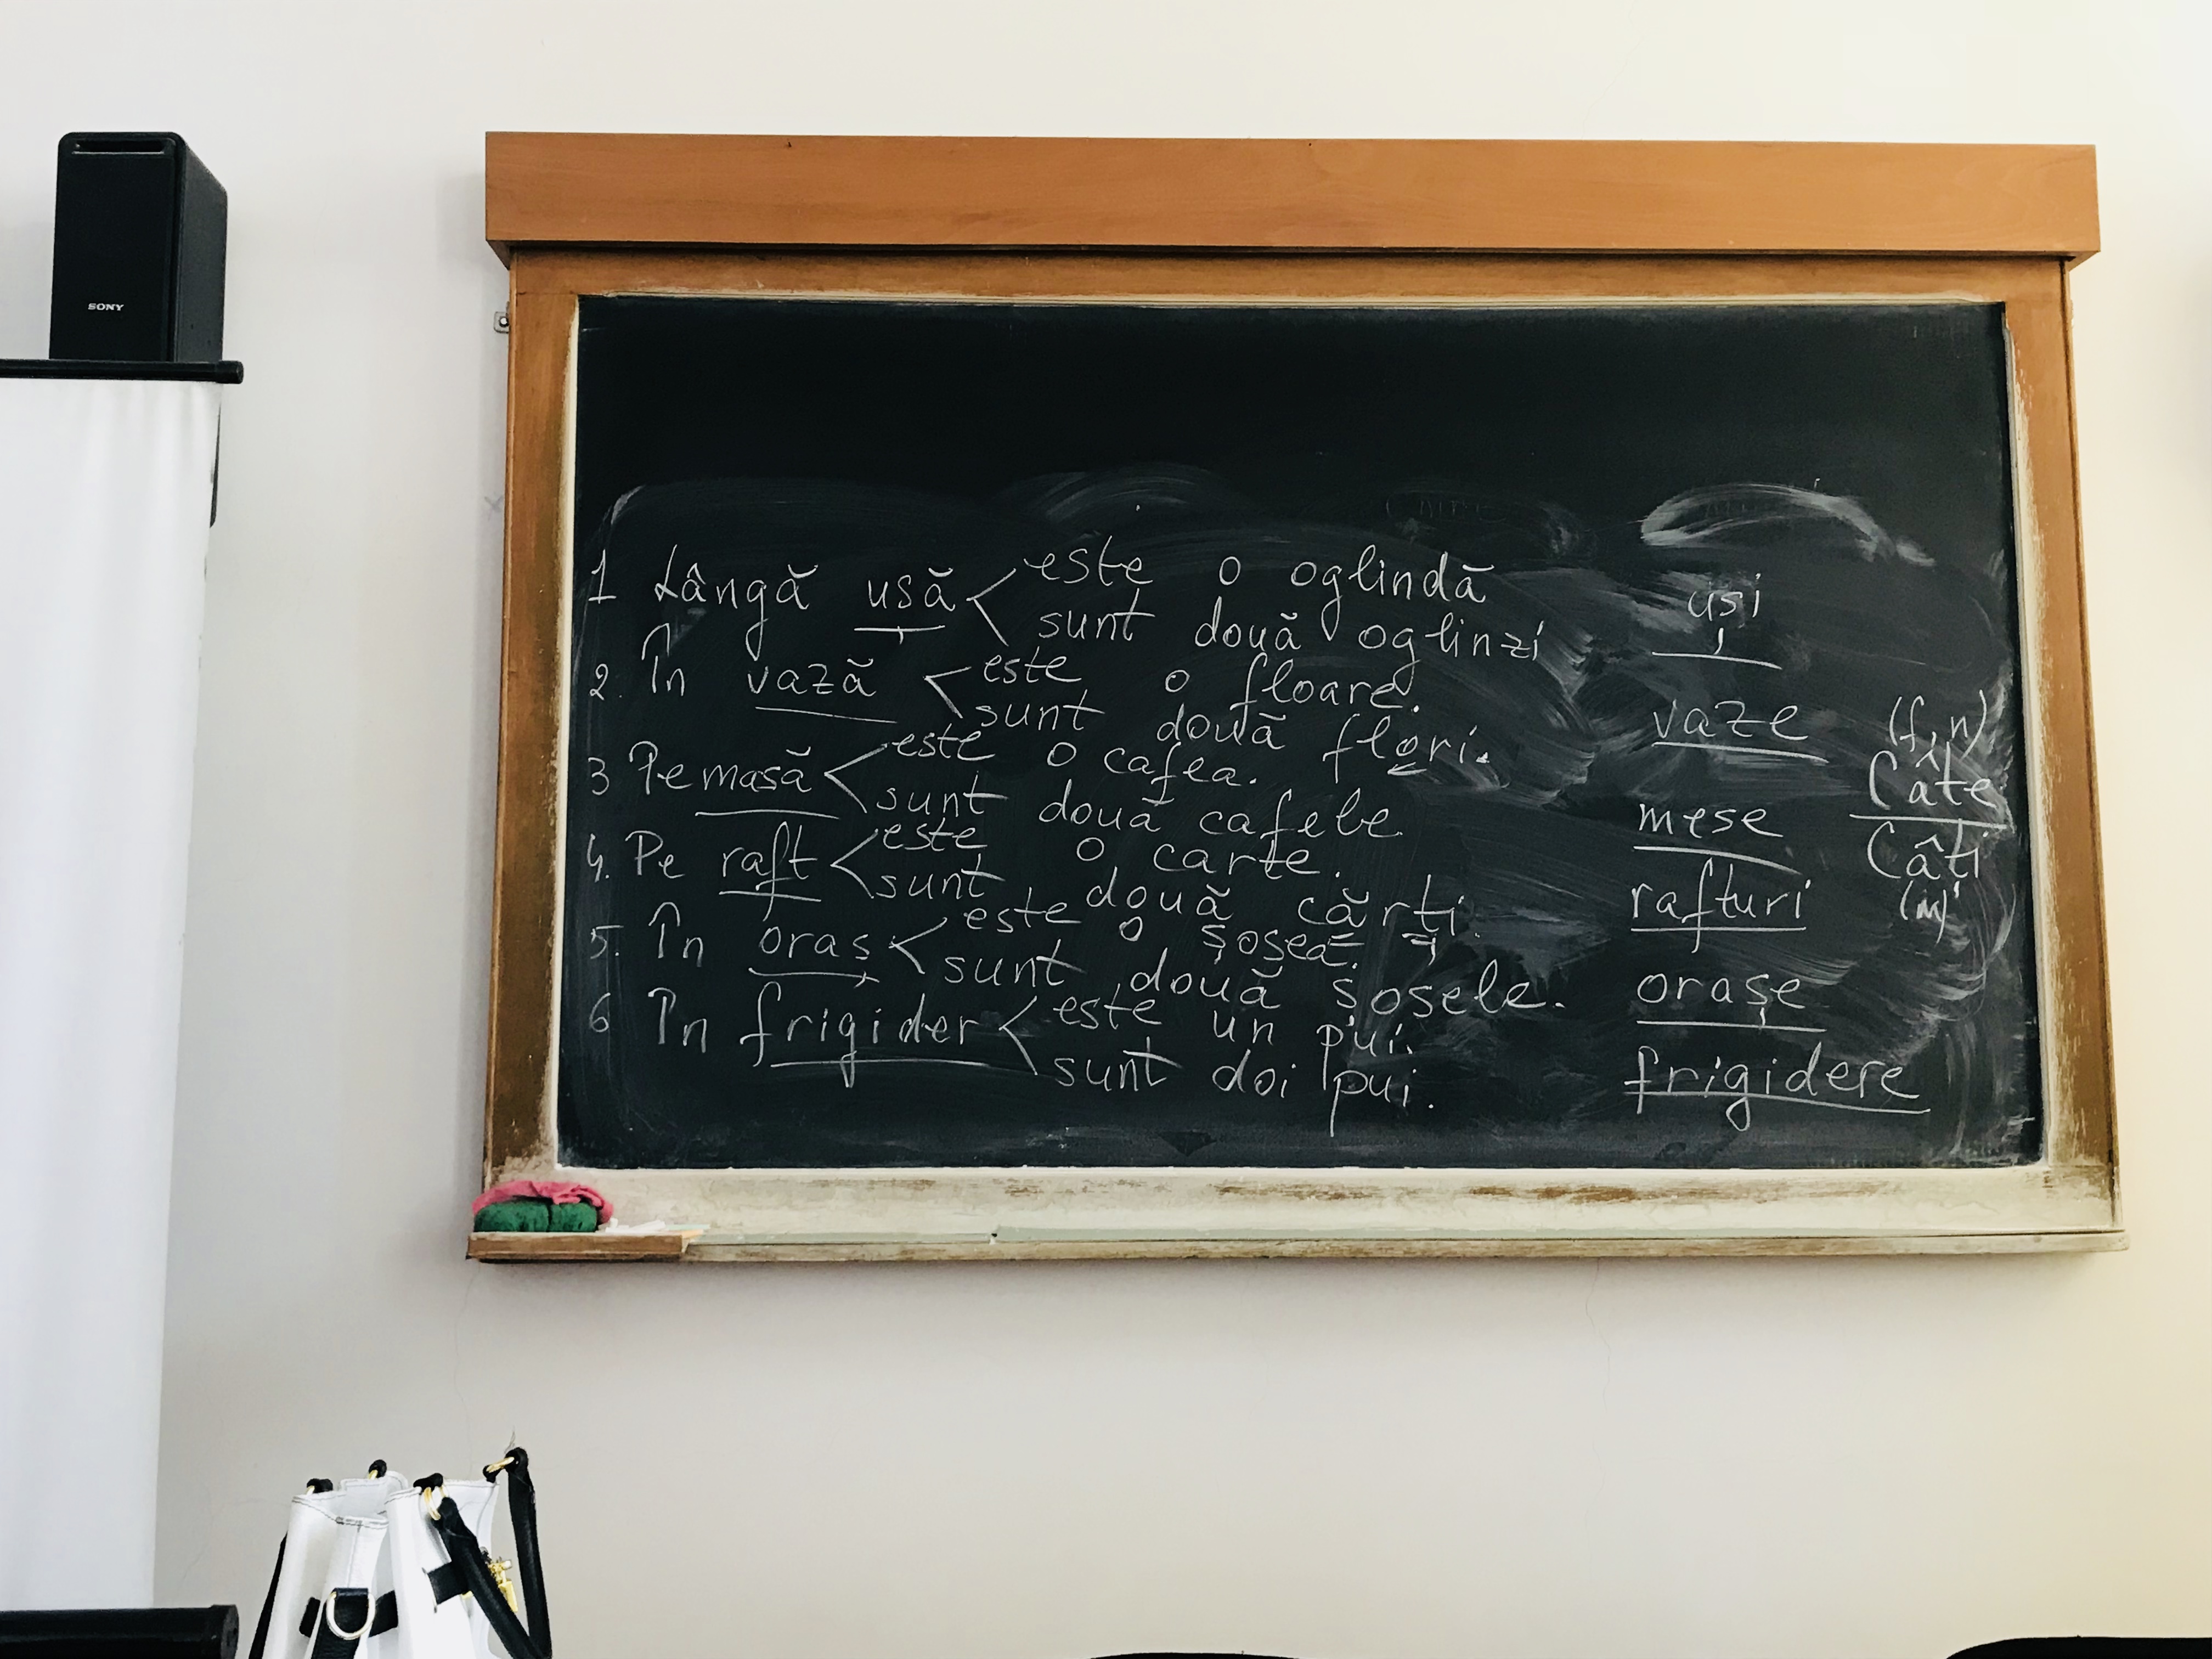 SONY
1 Lângă ușă este o oglindă
sunt două oglinzi
uși
2. În vază este o floare.
sunt două flori.
vaze
(f,n)
Câte
3 Pe masă este o cafea.
sunt două cafele
mese
Câți
(m)
4. Pe raft este o carte.
sunt două cărți.
rafturi
5. În oraș este o șosea.
sunt două șosele.
orașe
6 În frigider este un pui.
sunt doi pui.
frigidere